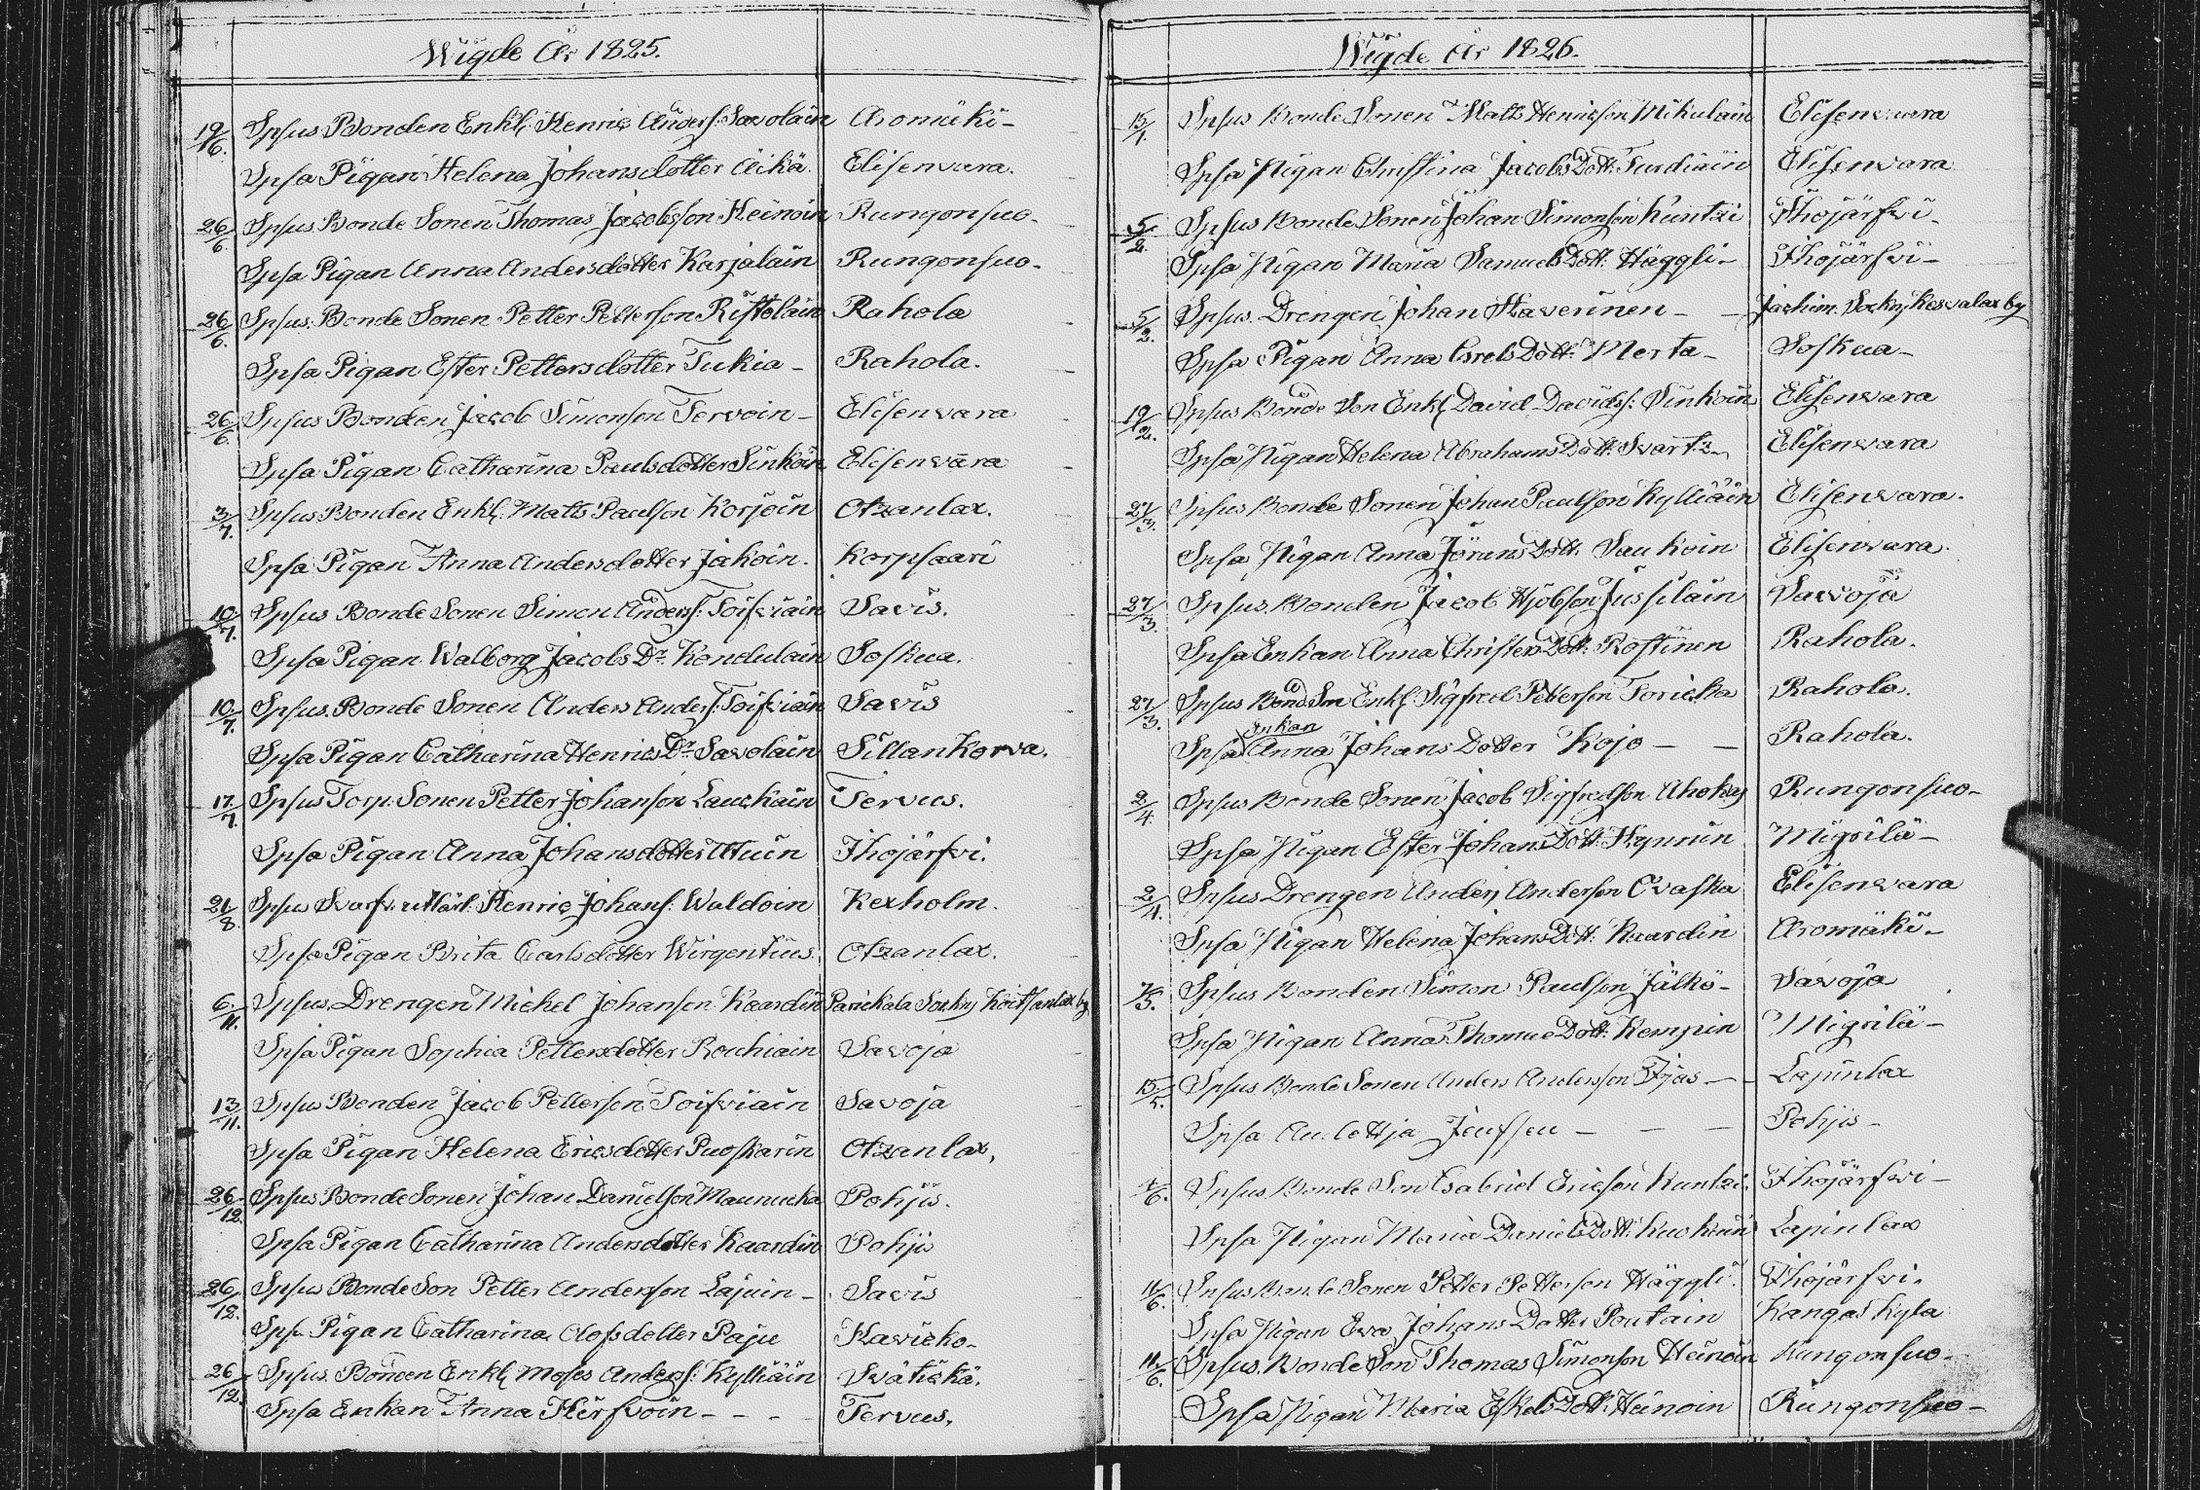 Wigde År 1825.
19/6. Spsus Bonden Enkl. Henric Anders: Savolain Aromäki-
Spsa Pigan Helena Johansdotter Äikä. Elisenvara.
26/6. Spsus Bonde Sonen Thomas Jacobsson Heinoin Rungonsuo-
Spsa Pigan Anna Andersdotter Karjalain Rungonsuo-
26/6. Spsus Bonde Sonen Petter Petterson Ristolain Rahola
Spsa Pigan Ester Pettersdotter Tukia - Rahola.
26/6. Spsus Bonden Jacob Simonson Tervoin - Elisenvara
Spsa Pigan Catharina Paulsdotter Sinkoin Elisenvara
3/7. Spsus Bonden Enkl. Matts Paulson Korjoin Otzanlax.
Spsa Pigan Anna Andersdotter Jakoin. Korpsaari
10/7. Spsus Bonde Sonen Simon Anders: Toifviain Savis.
Spsa Pigan Walborg Jacobs Dr. Kondulain Soskua.
10/7. Spsus Bonde Sonen Anders Anders: Toifviain Savis
Spsa Pigan Catharina Henrics Dr. Savolain Sillankorva.
17/7. Spsus Torp. Sonen Petter Johanson Lauckain Tervus.
Spsa Pigan Anna Johansdotter Attuin Ihojärfvi.
21/8. Spsus Henric Johans: Waldoin Kexholm.
Spsa Pigan Brita Carlsdotter Wirgentius. Otzanlax.
6/11. Spsus Drengen Mickel Johanson Kaardin Parickala Sockn Koitsanlax by
Spsa Pigan Sophia Pettersdotter Rouhiain Savoja
13/11. Spsus Bonden Jacob Petterson Toifviain Savoja
Spsa Pigan Helena Ericsdotter Puoskarin Otzanlax,
26/12. Spsus Bonde Sonen Johan Danielson Maunucka Pohjis.
Spsa Pigan Catharina Andersdotter Kaardin Pohjis
26/12. Spsus Bonde Son Petter Anderson Lajuin - Savis
Spsa Pigan Catharina Olofsdotter Paju Kavicko-
26/12. Spsus Bonden Enkl. Moses Anders: Kylliäin Svätickä.
Spsa Enkan Anna Hirfvoin - - - Tervus.
Wigde År 1826.
15/1. Spsus Bonde Sonen Mats Henricson Mikulain Elisenvara
Spsa Pigan Christina Jacobs Dott: Turdiain Elisenvara
5/2. Spsus Bonde Sonen Johan Simonson Kuntzi Ihojärfvi-
Spsa Pigan Maria Samuels Dott: Häggli- Ihojärfvi-
5/2. Spsus Drengen Johan Haverinen - - Jackim. Sockn Kesvalax by
Spsa Pigan Anna Esaels Dott: Merta- Soskua-
19/2. Spsus Bonde Son Enkl. David Davids: Sinkoin Elisenvara
Spsa Pigan Helena Abrahams Dott: Svartz- Elisenvara
27/3. Spsus Bonde Sonen Johan Paulson Kylliäin Elisenvara.
Spsa Pigan Anna Jörans Dott: Saukoin Elisenvara.
27/3. Spsus Bonden Jacob Hjobson Jussilain Savoja
Spsa Enkan Anna Christers Dott: Rostinen Rahola.
27/3. Spsus Bonde Son Enkl. Sigfred Petterson Toricka Rahola.
Spsa Enkan Anna Johans Dotter Kojo - - Rahola.
2/4. Spsus Bonde Sonen Jacob Sigfredson Ahokas Rungonsuo-
Spsa Pigan Ester Johans Dott: Hynnin Migrilä-
2/4. Spsus Drengen Anders Anderson Ovaska Elisenvara
Spsa Pigan Helena Johans Dott: Kaardin Aromäki-
7/5. Spsus Bonden Simon Paulson Jälkö- Savoja
Spsa Pigan Anna Thomæ Dott: Kempin Migrilä-
15/5. Spsus Bonde Sonen Anders Anderson Ijäs - - Lapinlax
Spsa - - - Pohjis-
4/6. Spsus Bonde Son Gabriel Ericson Kuntzi. Ihojärfvi-
Spsa Pigan Maria Daniels Dott: Kuokkain Lapinlax
11/6. Spsus Bonde Sonen Petter Petterson Häggli Ihojärfvi.
Spsa Pigan Eva Johans Dotter Poutain Kangaskylä
11/6. Spsus Bonde Son Thomas Simonson Heinoin Rungonsuo-
Spsa Pigan Maria Eskels Dott: Heinoin Rungonsuo-